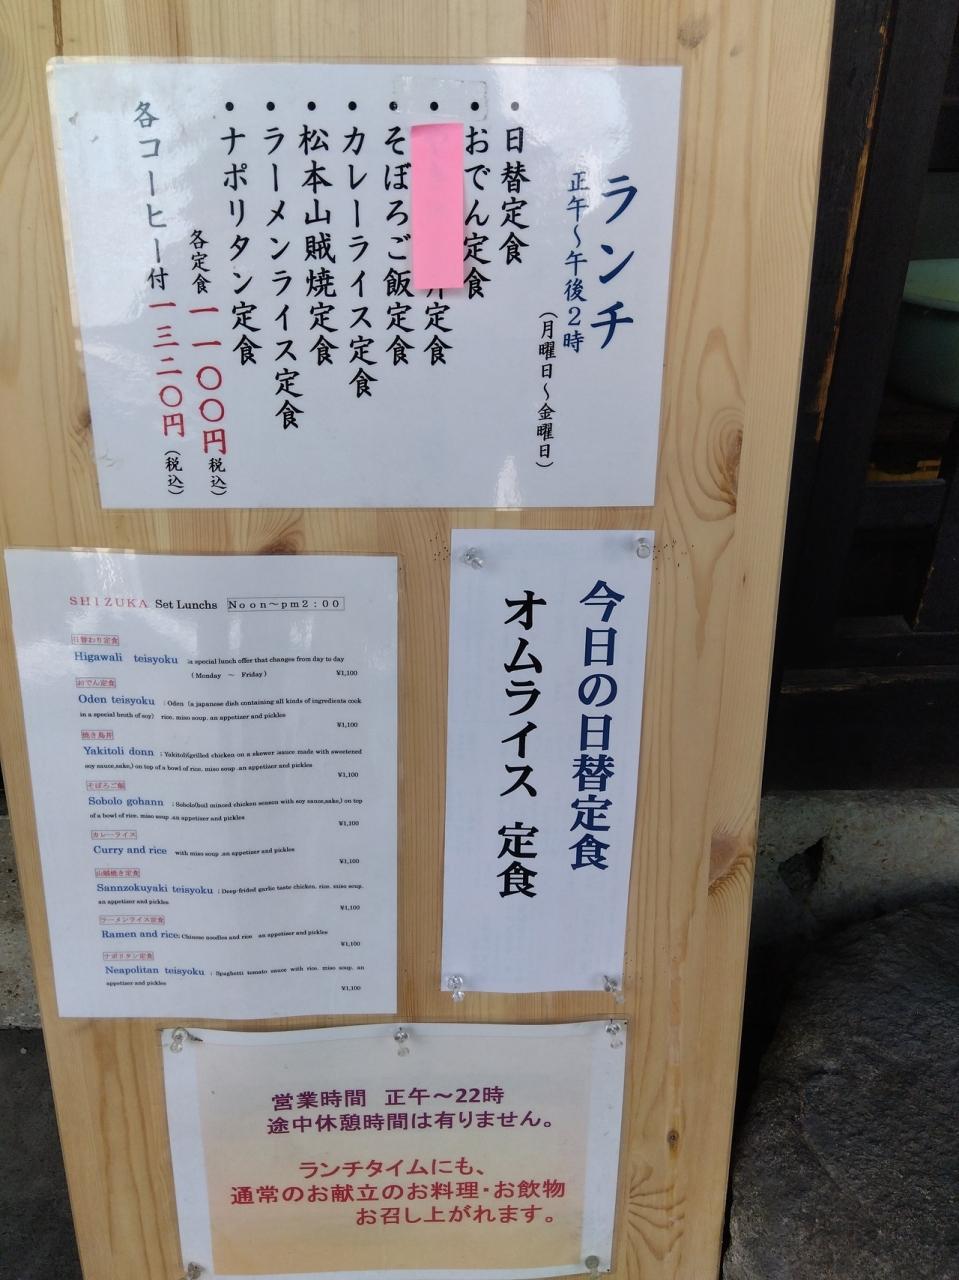 ランチ
正午〜午後2時
(月曜日〜金曜日)
・日替定食
・おでん定食
・ 丼定食
・そぼろご飯定食
・カレーライス定食
・松本山賊焼定食
・ラーメンライス定食
・ナポリタン定食
各定食 一一〇〇円(税込)
各コーヒー付 一三二〇円(税込)
SHIZUKA Set Lunchs Noon〜pm2:00
日替わり定食
Higawali teisyoku :a special lunch offer that changes from day to day
(Monday 〜 Friday) ¥1,100
おでん定食
Oden teisyoku : Oden (a japanese dish containing all kinds of ingredients cook
in a special broth of soy) rice, miso soup, an appetizer and pickles
¥1,100
焼き鳥丼
Yakitoli donn : Yakitoli(grilled chicken on a skewer :sauce made with sweetened
soy sauce,sake,) on top of a bowl of rice, miso soup ,an appetizer and pickles
¥1,100
そぼろご飯
Sobolo gohann : Sobolo(boil minced chicken season with soy sauce,sake,) on top
of a bowl of rice, miso soup ,an appetizer and pickles
¥1,100
カレーライス
Curry and rice with miso soup ,an appetizer and pickles
¥1,100
山賊焼き定食
Sannzokuyaki teisyoku : Deep-frided garlic taste chicken, rice, miso soup,
an appetizer and pickles
¥1,100
ラーメンライス定食
Ramen and rice: Chinese noodles and rice an appetizer and pickles
¥1,100
ナポリタン定食
Neapolitan teisyoku : Spaghetti tomato sauce with rice, miso soup, an
appetizer and pickles
¥1,100
今日の日替定食
オムライス 定食
営業時間 正午〜22時
途中休憩時間は有りません。
ランチタイムにも、
通常のお献立のお料理・お飲物
お召し上がれます。